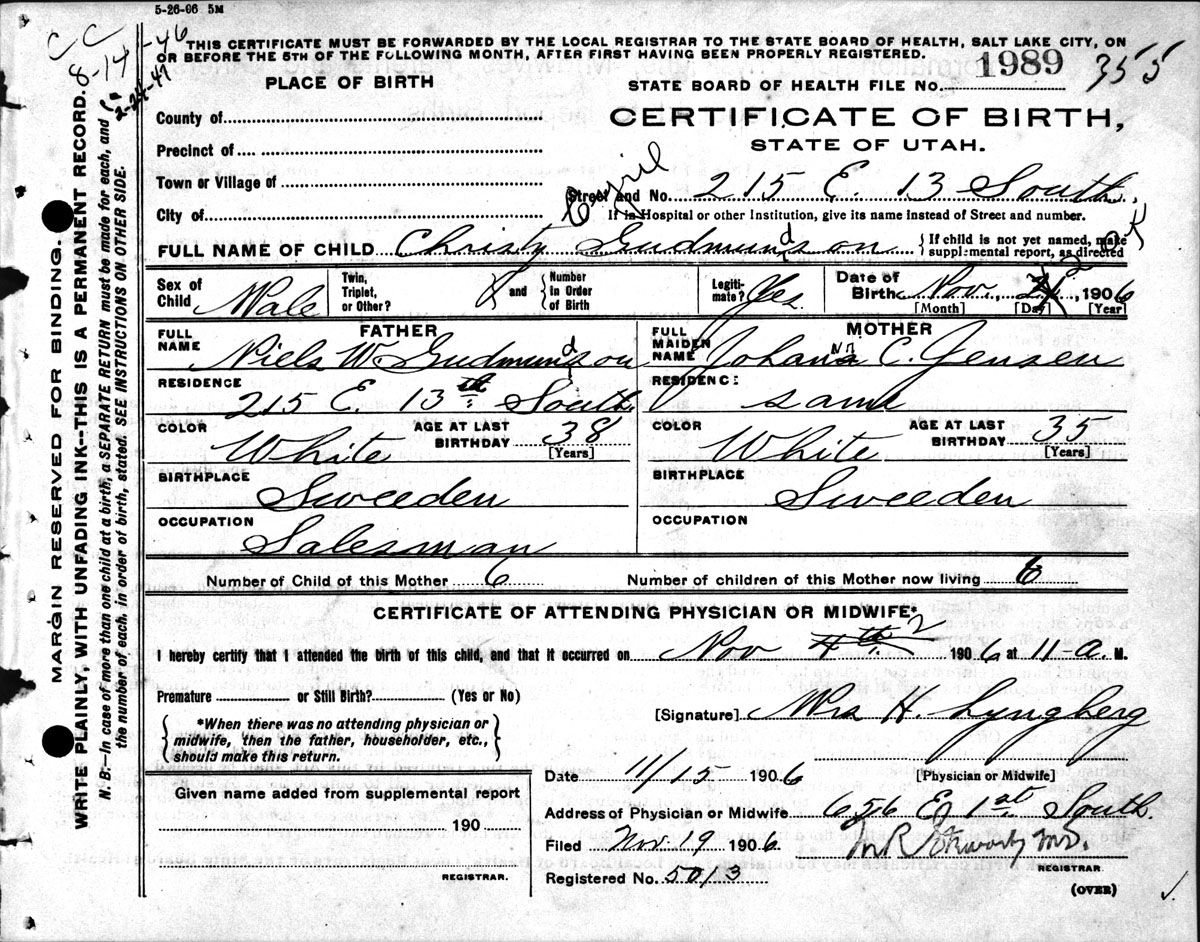 5-26-06 5M
CC
8-14-46
2-24-47
THIS CERTIFICATE MUST BE FORWARDED BY THE LOCAL REGISTRAR TO THE STATE BOARD OF HEALTH, SALT LAKE CITY, ON
OR BEFORE THE 5TH OF THE FOLLOWING MONTH, AFTER FIRST HAVING BEEN PROPERLY REGISTERED.
MARGIN RESERVED FOR BINDING.
WRITE PLAINLY, WITH UNFADING INK--THIS IS A PERMANENT RECORD.
N. B.—In case of more than one child at a birth, a SEPARATE RETURN must be made for each, and
the number of each, in order of birth, stated. SEE INSTRUCTIONS ON OTHER SIDE.
PLACE OF BIRTH
STATE BOARD OF HEALTH FILE No. 1989 355
County of
CERTIFICATE OF BIRTH,
Precinct of
STATE OF UTAH.
Town or Village of
Street and No. 215 E. 13 South
City of
If in Hospital or other Institution, give its name instead of Street and number.
Cyril
FULL NAME OF CHILD Christy Gudmundson {If child is not yet named, make
supplemental report, as directed
Sex of Child Male Twin, Triplet, or Other? and {Number in Order of Birth Legiti-mate? Yes Date of Birth Nov. 2, 1906
[Month] [Day] [Year]
FATHER MOTHER
FULL NAME Niels W Gudmundson FULL MAIDEN NAME Johana C. Jensen
RESIDENCE RESIDENCE
215 E. 13th South same
COLOR White AGE AT LAST BIRTHDAY 38 [Years] COLOR White AGE AT LAST BIRTHDAY 35 [Years]
BIRTHPLACE Sweeden BIRTHPLACE Sweeden
OCCUPATION Salesman OCCUPATION
Number of Child of this Mother 6 Number of children of this Mother now living 6
CERTIFICATE OF ATTENDING PHYSICIAN OR MIDWIFE*
I hereby certify that I attended the birth of this child, and that it occurred on Nov 4th 2 1906 at 11-a. M.
Premature or Still Birth? (Yes or No)
[Signature] Mrs H. Lyngberg
{*When there was no attending physician or
midwife, then the father, householder, etc.,
should make this return.}
Date 11/15 1906 [Physician or Midwife]
Given name added from supplemental report
Address of Physician or Midwife 656 E 1st South.
190
Filed Nov. 19 1906
REGISTRAR.
REGISTRAR.
Registered No. 5013
(OVER)